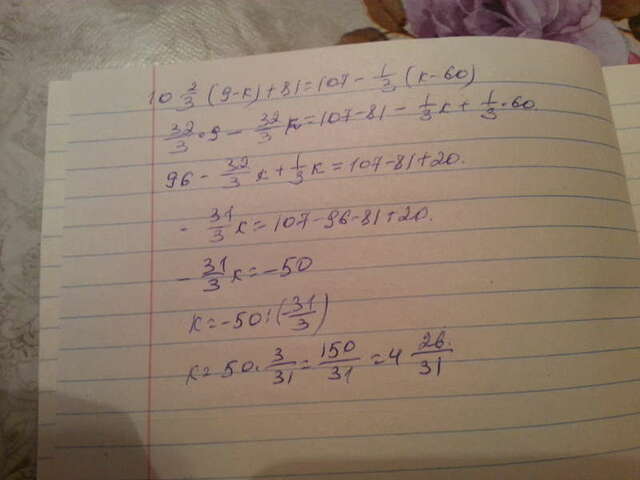 10 2/3 (9-к)+81=107- 1/3 (к-60)
32/3 · 9 - 32/3 к=107-81- 1/3 к+ 1/3 · 60.
96- 32/3 к+ 1/3 к=107-81+20.
- 31/3 к=107-96-81+20.
- 31/3 к=-50
к=-50:(- 31/3)
к=50· 3/31 = 150/31 =4 26/31